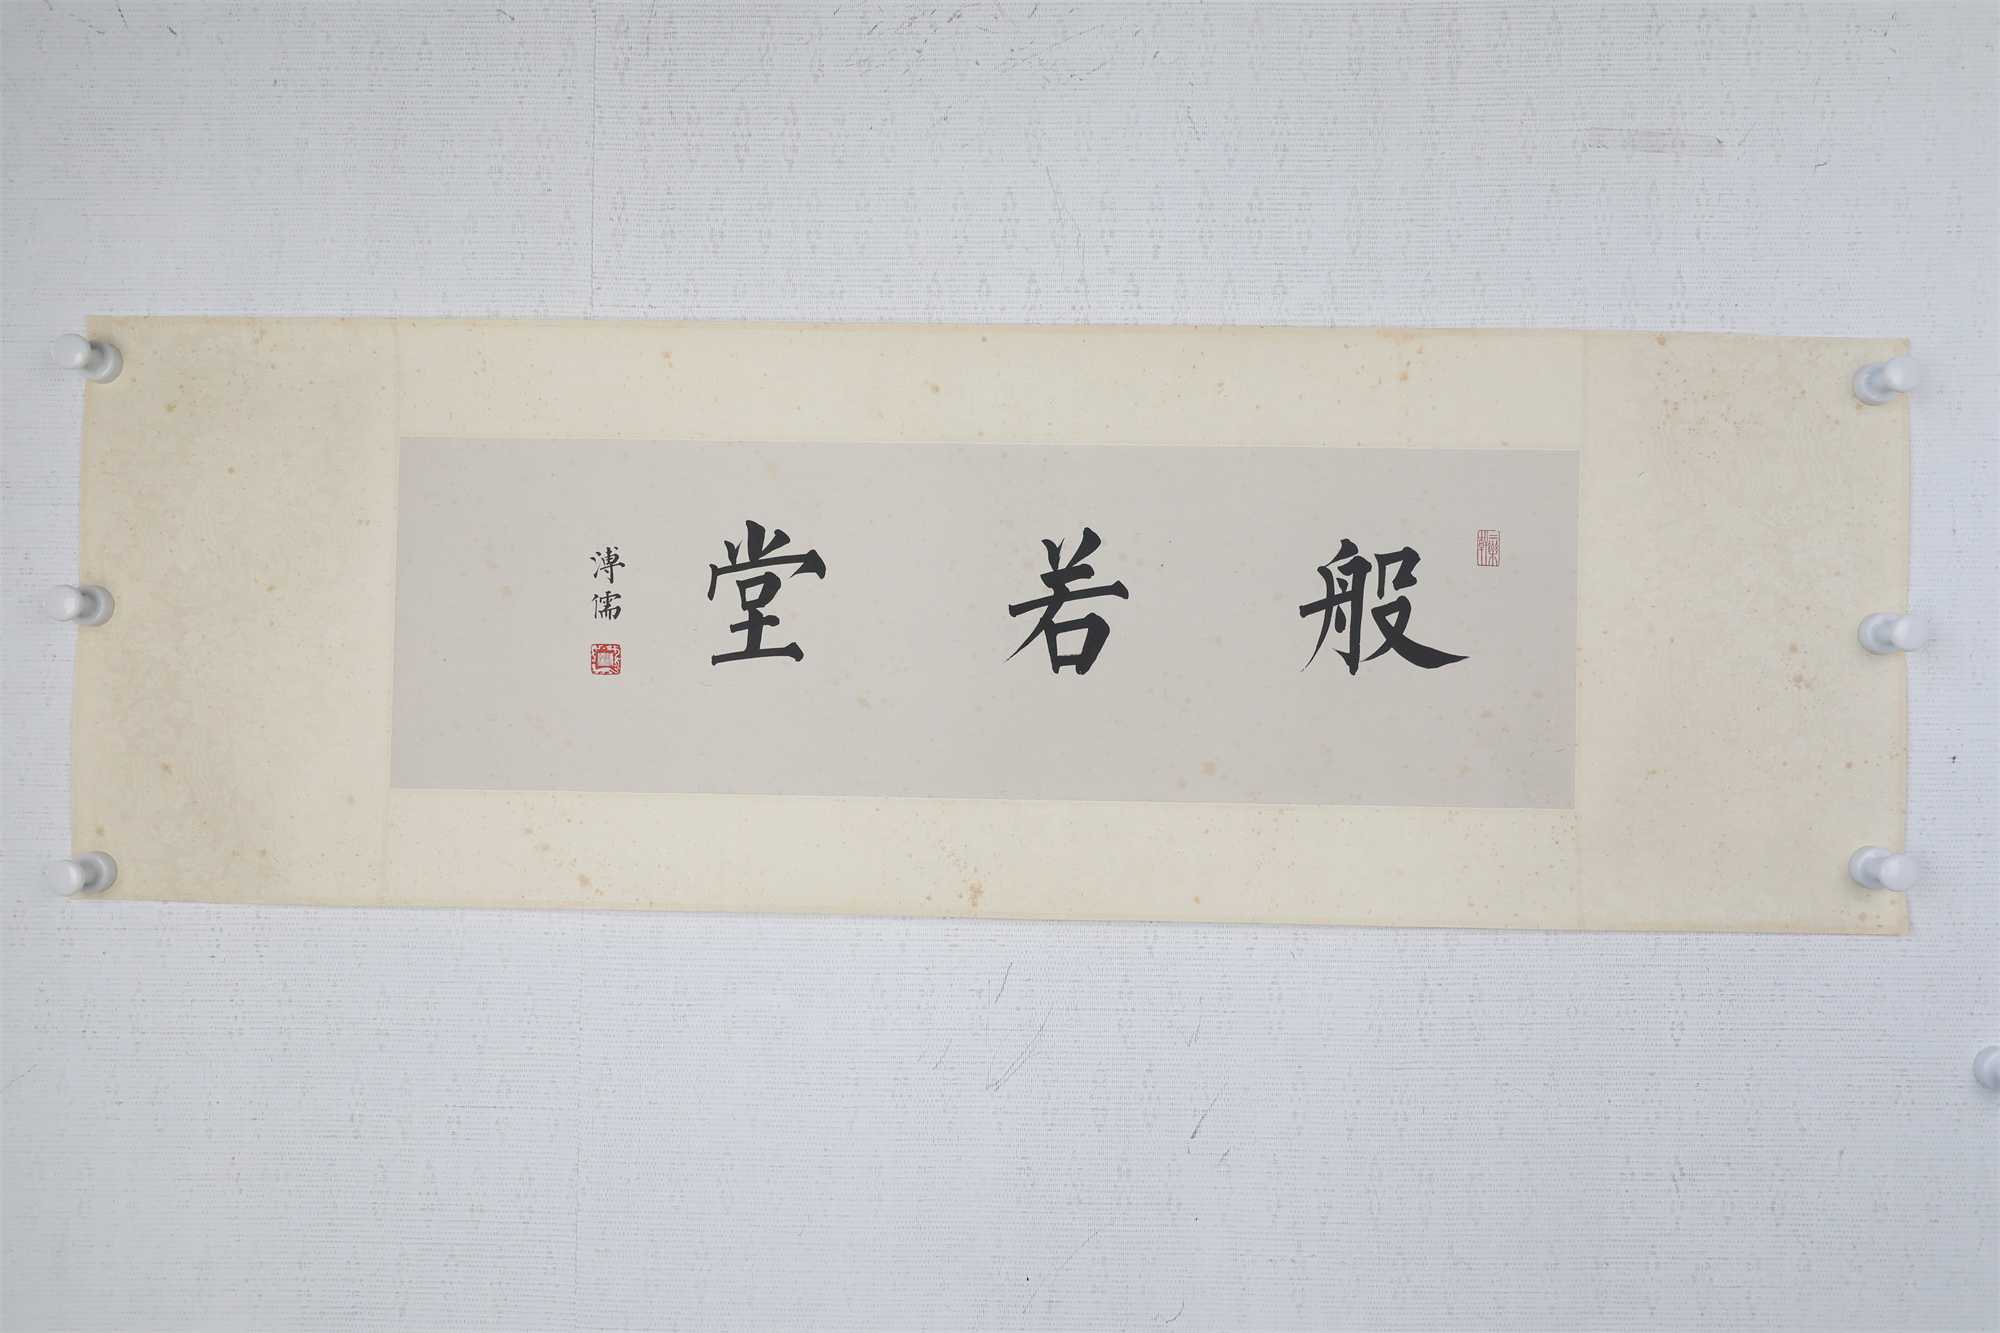 般若堂
溥儒